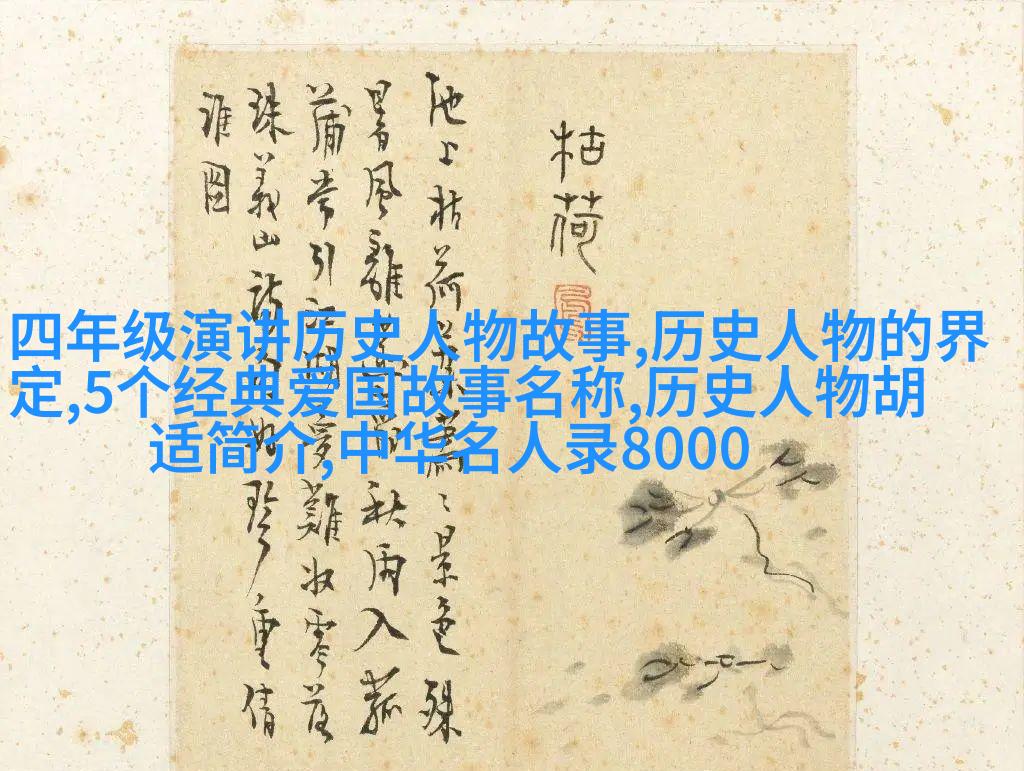 枯荷
池上枯荷葉蕭〻景色殊
暑風離秋雨入菰
蒲常引江湖夢難收零落
珠義山詩句好珍重倩
誰圖
四年级演讲历史人物故事,历史人物的界
定,5个经典爱国故事名称,历史人物胡
适简介,中华名人录8000